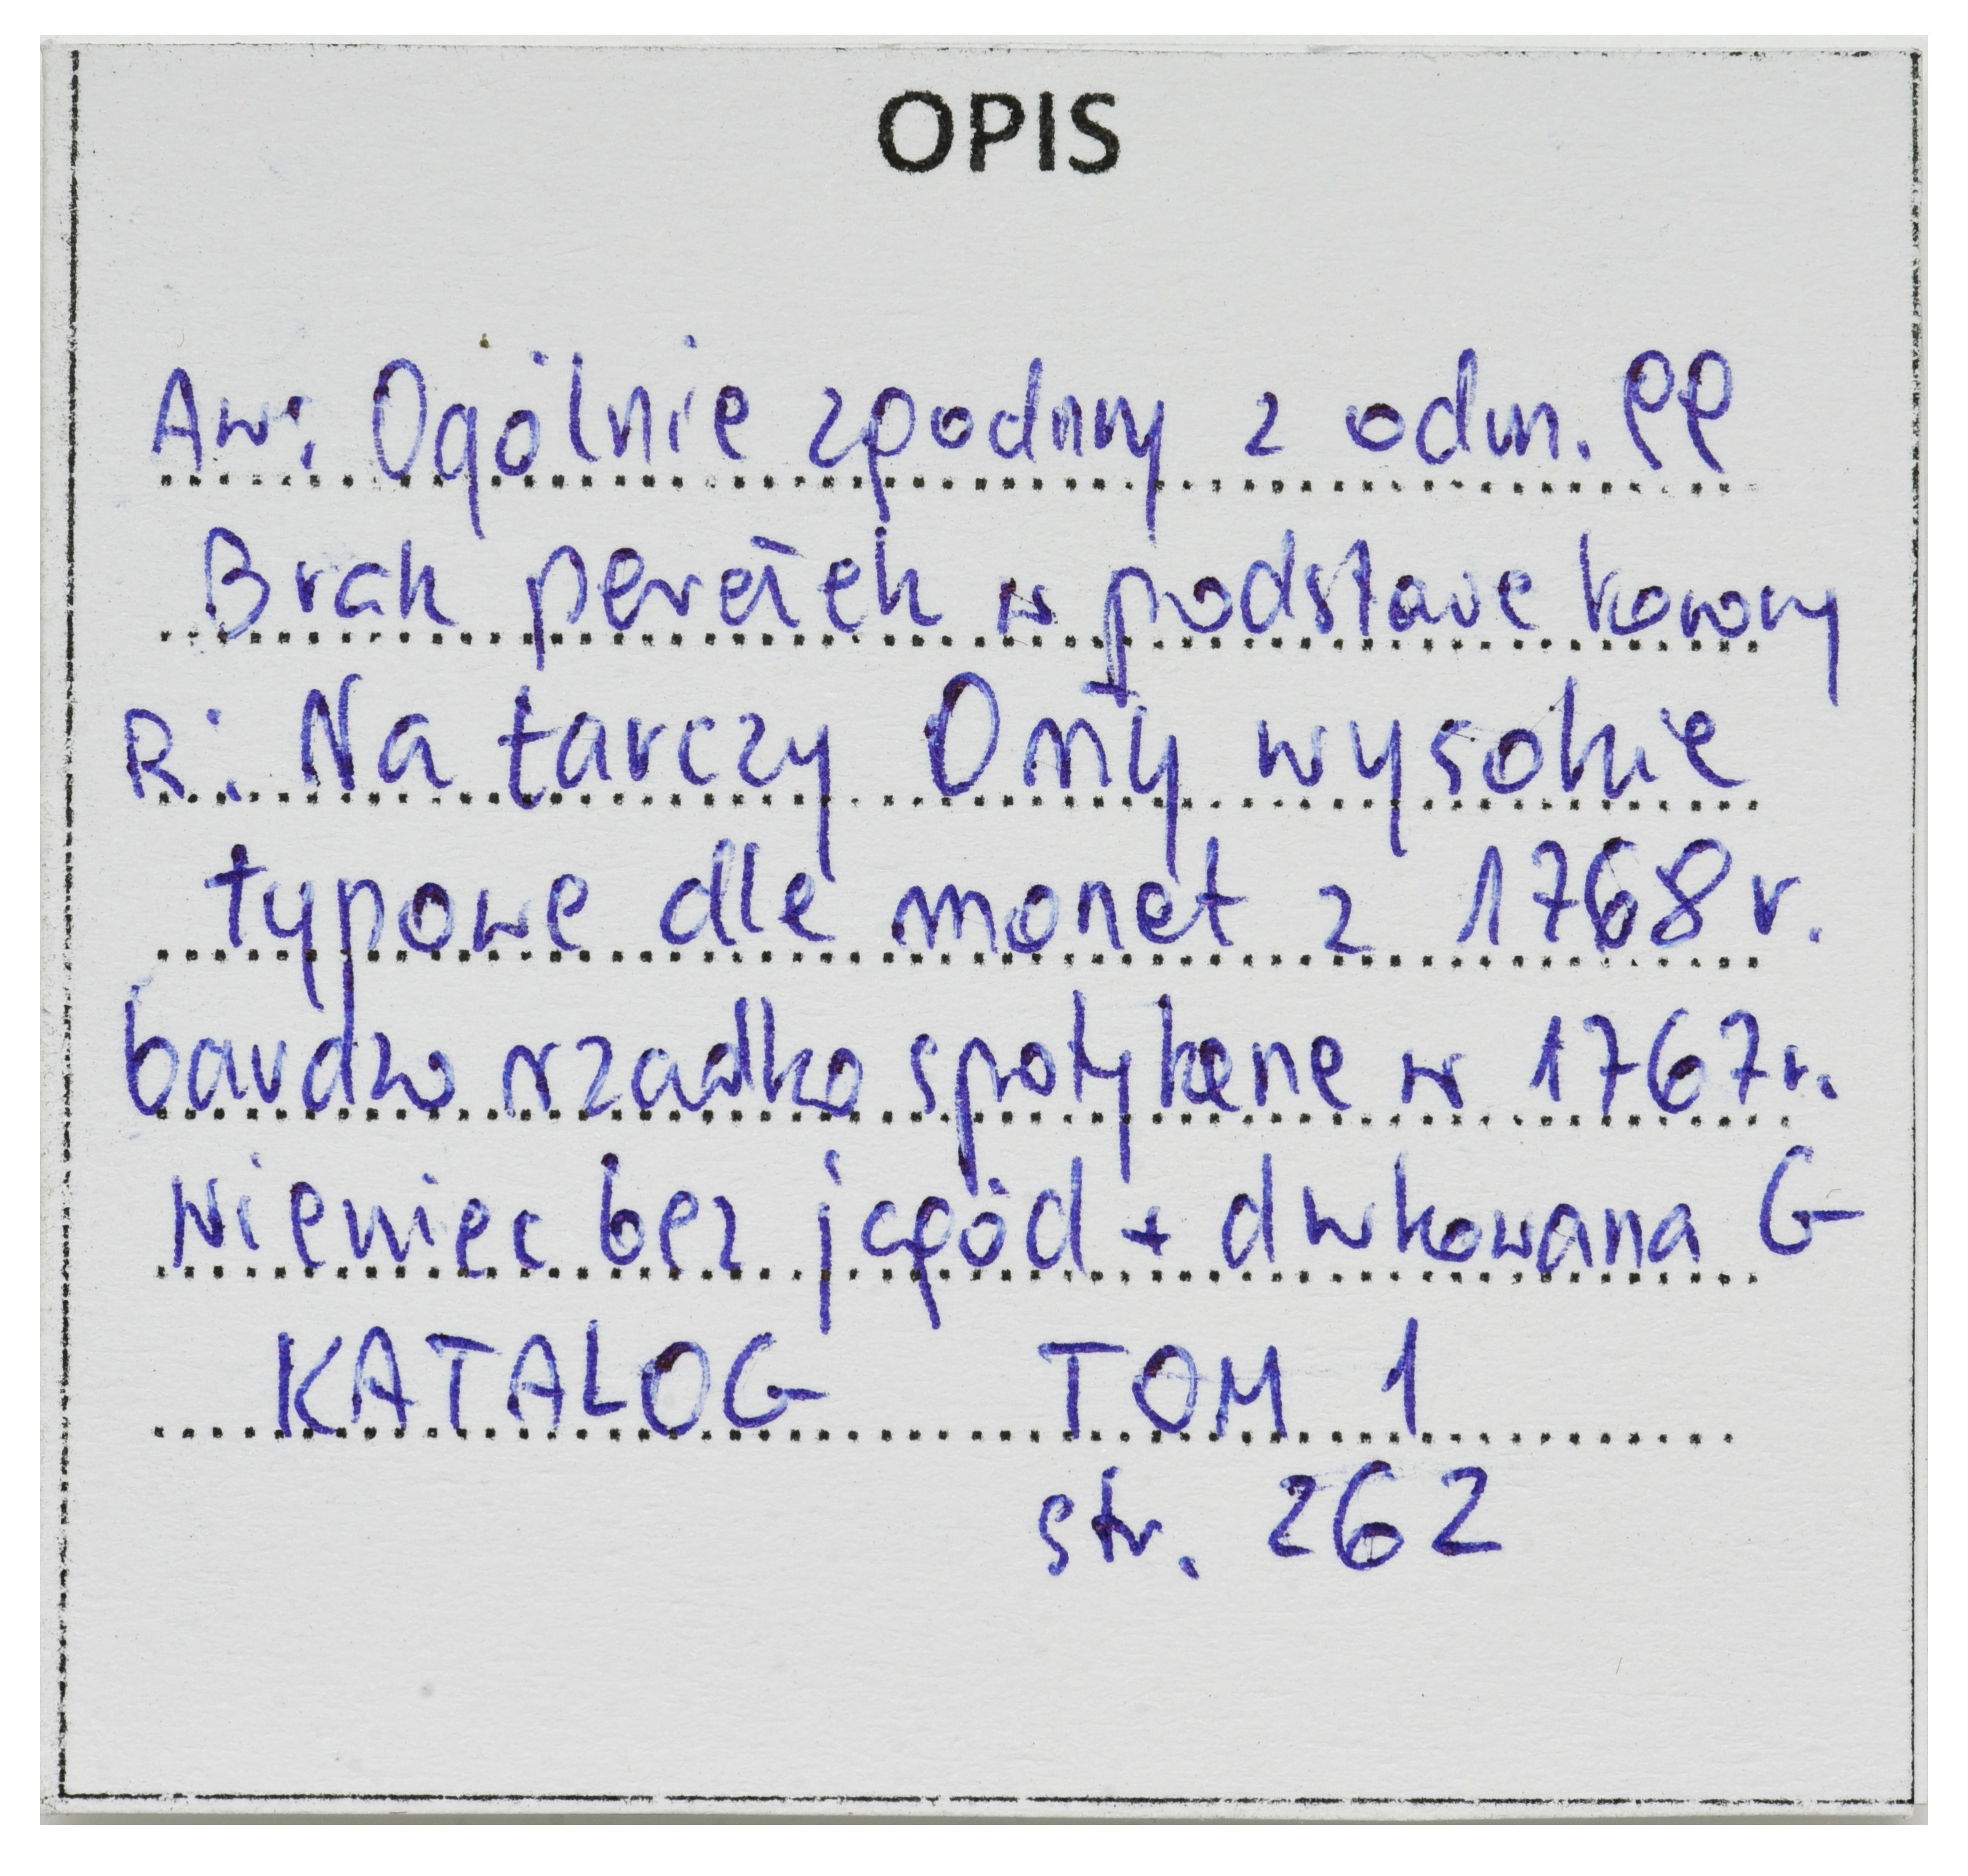 OPIS
Aw: Ogólnie zgodny z odm. PP
Brak perełek w podstawe korony
R: Na tarczy Orły wysokie
typowe dle monet z 1768 r.
bardzo rzadko spotykane w 1767 r.
Wieniec bez jagód + dwkowana G
KATALOG TOM 1
str. 262